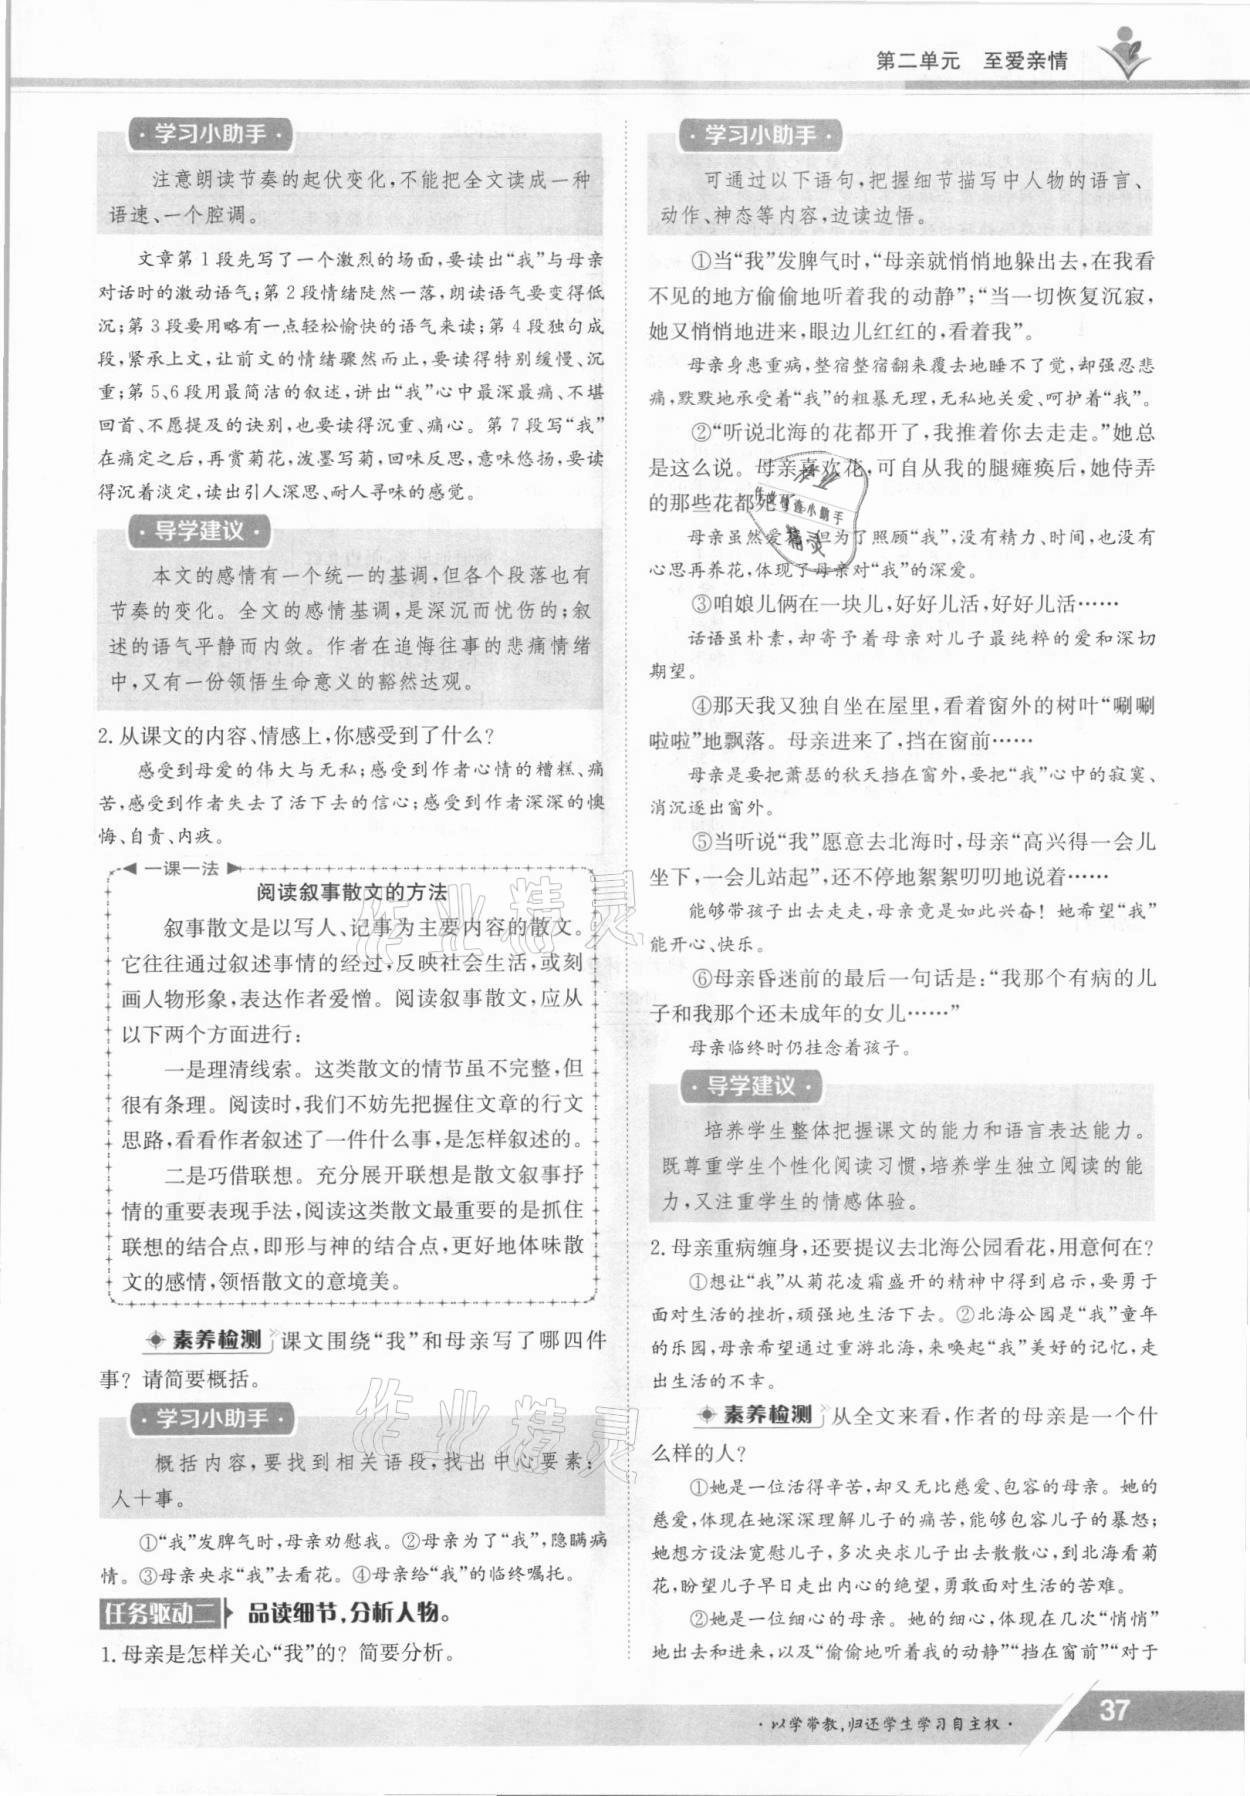 第二单元 至爱亲情
·学习小助手·
注意朗读节奏的起伏变化,不能把全文读成一种
语速、一个腔调。
文章第1段先写了一个激烈的场面,要读出“我”与母亲
对话时的激动语气;第2段情绪陡然一落,朗读语气要变得低
沉;第3段要用略有一点轻松愉快的语气来读;第4段独句成
段,紧承上文,让前文的情绪骤然而止,要读得特别缓慢、沉
重;第5、6段用最简洁的叙述,讲出“我”心中最深最痛、不堪
回首、不愿提及的诀别,也要读得沉重、痛心。第7段写“我”
在痛定之后,再赏菊花,泼墨写菊,回味反思,意味悠扬,要读
得沉着淡定,读出引人深思、耐人寻味的感觉。
·导学建议·
本文的感情有一个统一的基调,但各个段落也有
节奏的变化。全文的感情基调,是深沉而忧伤的;叙
述的语气平静而内敛。作者在追悔往事的悲痛情绪
中,又有一份领悟生命意义的豁然达观。
2. 从课文的内容、情感上,你感受到了什么?
感受到母爱的伟大与无私;感受到作者心情的糟糕、痛
苦,感受到作者失去了活下去的信心;感受到作者深深的懊
悔、自责、内疚。
一课一法
阅读叙事散文的方法
叙事散文是以写人、记事为主要内容的散文。
它往往通过叙述事情的经过,反映社会生活,或刻
画人物形象,表达作者爱憎。阅读叙事散文,应从
以下两个方面进行:
一是理清线索。这类散文的情节虽不完整,但
很有条理。阅读时,我们不妨先把握住文章的行文
思路,看看作者叙述了一件什么事,是怎样叙述的。
二是巧借联想。充分展开联想是散文叙事抒
情的重要表现手法,阅读这类散文最重要的是抓住
联想的结合点,即形与神的结合点,更好地体味散
文的感情,领悟散文的意境美。
素养检测 课文围绕“我”和母亲写了哪四件
事?请简要概括。
·学习小助手·
概括内容,要找到相关语段,找出中心要素:
人+事。
①“我”发脾气时,母亲劝慰我。②母亲为了“我”,隐瞒病
情。③母亲央求“我”去看花。④母亲给“我”的临终嘱托。
任务驱动二 品读细节,分析人物。
1. 母亲是怎样关心“我”的?简要分析。
·学习小助手·
可通过以下语句,把握细节描写中人物的语言、
动作、神态等内容,边读边悟。
①当“我”发脾气时,“母亲就悄悄地躲出去,在我看
不见的地方偷偷地听着我的动静”;“当一切恢复沉寂,
她又悄悄地进来,眼边儿红红的,看着我”。
母亲身患重病,整宿整宿翻来覆去地睡不了觉,却强忍悲
痛,默默地承受着“我”的粗暴无理,无私地关爱、呵护着“我”。
②“听说北海的花都开了,我推着你去走走。”她总
是这么说。母亲喜欢花,可自从我的腿瘫痪后,她侍弄
的那些花都死
母亲虽然爱 但为了照顾“我”,没有精力、时间,也没有
心思再养花,体现了母亲对“我”的深爱。
③咱娘儿俩在一块儿,好好儿活,好好儿活……
话语虽朴素,却寄予着母亲对儿子最纯粹的爱和深切
期望。
④那天我又独自坐在屋里,看着窗外的树叶“唰唰
啦啦”地飘落。母亲进来了,挡在窗前……
母亲是要把萧瑟的秋天挡在窗外,要把“我”心中的寂寞、
消沉逐出窗外。
⑤当听说“我”愿意去北海时,母亲“高兴得一会儿
坐下,一会儿站起”,还不停地絮絮叨叨地说着……
能够带孩子出去走走,母亲竟是如此兴奋!她希望“我”
能开心、快乐。
⑥母亲昏迷前的最后一句话是:“我那个有病的儿
子和我那个还未成年的女儿……”
母亲临终时仍挂念着孩子。
·导学建议·
培养学生整体把握课文的能力和语言表达能力。
既尊重学生个性化阅读习惯,培养学生独立阅读的能
力,又注重学生的情感体验。
2. 母亲重病缠身,还要提议去北海公园看花,用意何在?
①想让“我”从菊花凌霜盛开的精神中得到启示,要勇于
面对生活的挫折,顽强地生活下去。②北海公园是“我”童年
的乐园,母亲希望通过重游北海,来唤起“我”美好的记忆,走
出生活的不幸。
素养检测 从全文来看,作者的母亲是一个什
么样的人?
①她是一位活得辛苦,却又无比慈爱、包容的母亲。她的
慈爱,体现在她深深理解儿子的痛苦,能够包容儿子的暴怒;
她想方设法宽慰儿子,多次央求儿子出去散散心,到北海看菊
花,盼望儿子早日走出内心的绝望,勇敢面对生活的苦难。
②她是一位细心的母亲。她的细心,体现在几次“悄悄”
地出去和进来,以及“偷偷地听着我的动静”“挡在窗前”“对于
·以学带教,归还学生学习自主权·
37
作业精灵
作业精灵
作业
作业检查小助手
精灵